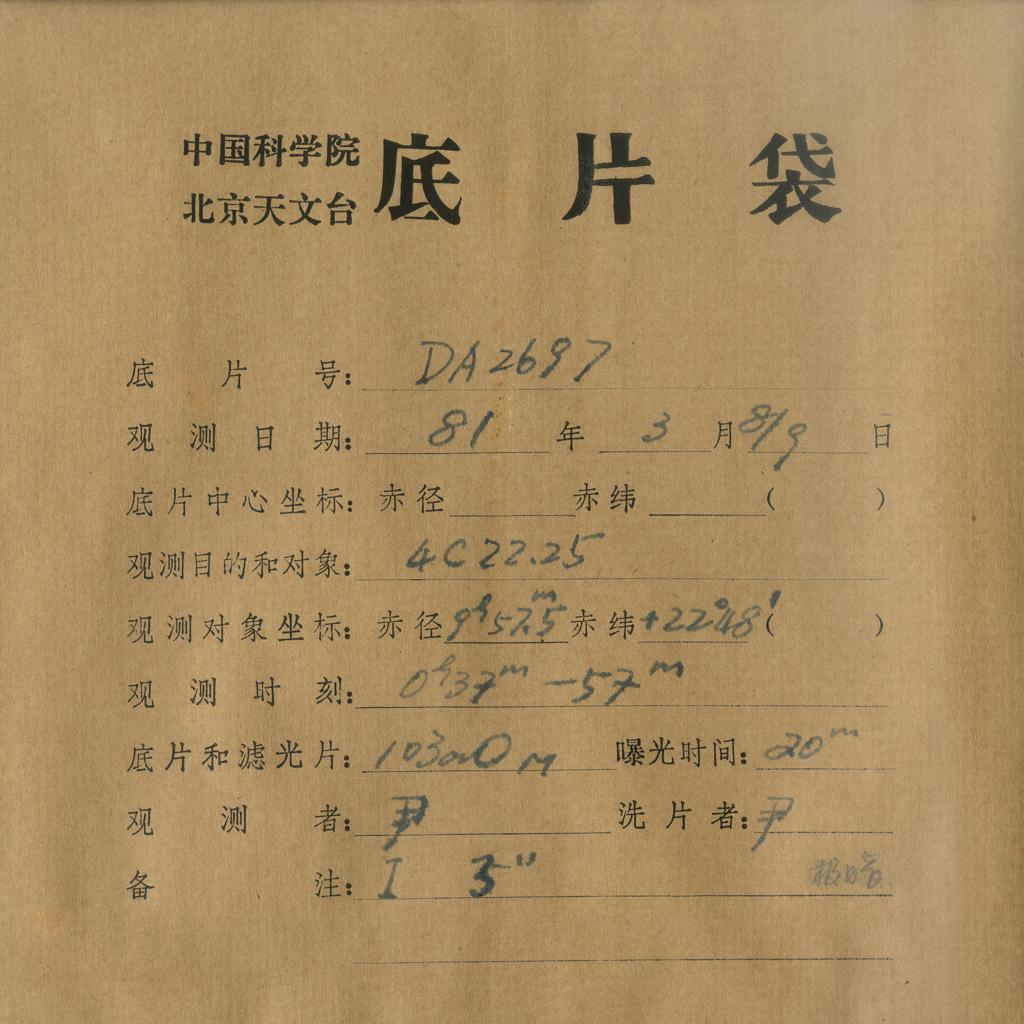 中国科学院
北京天文台
底片袋
底片号： DA2697
观测日期： 81 年 3 月 8/9 日
底片中心坐标：赤径 赤纬 （ ）
观测目的和对象： 4C 22.25
观测对象坐标：赤径 9h57m.5 赤纬 +22°48′ （ ）
观测时刻： 0h37m —57m
底片和滤光片： 103aO M 曝光时间： 20m
观测者： 尹 洗片者： 尹
备注： I 3" 极暗